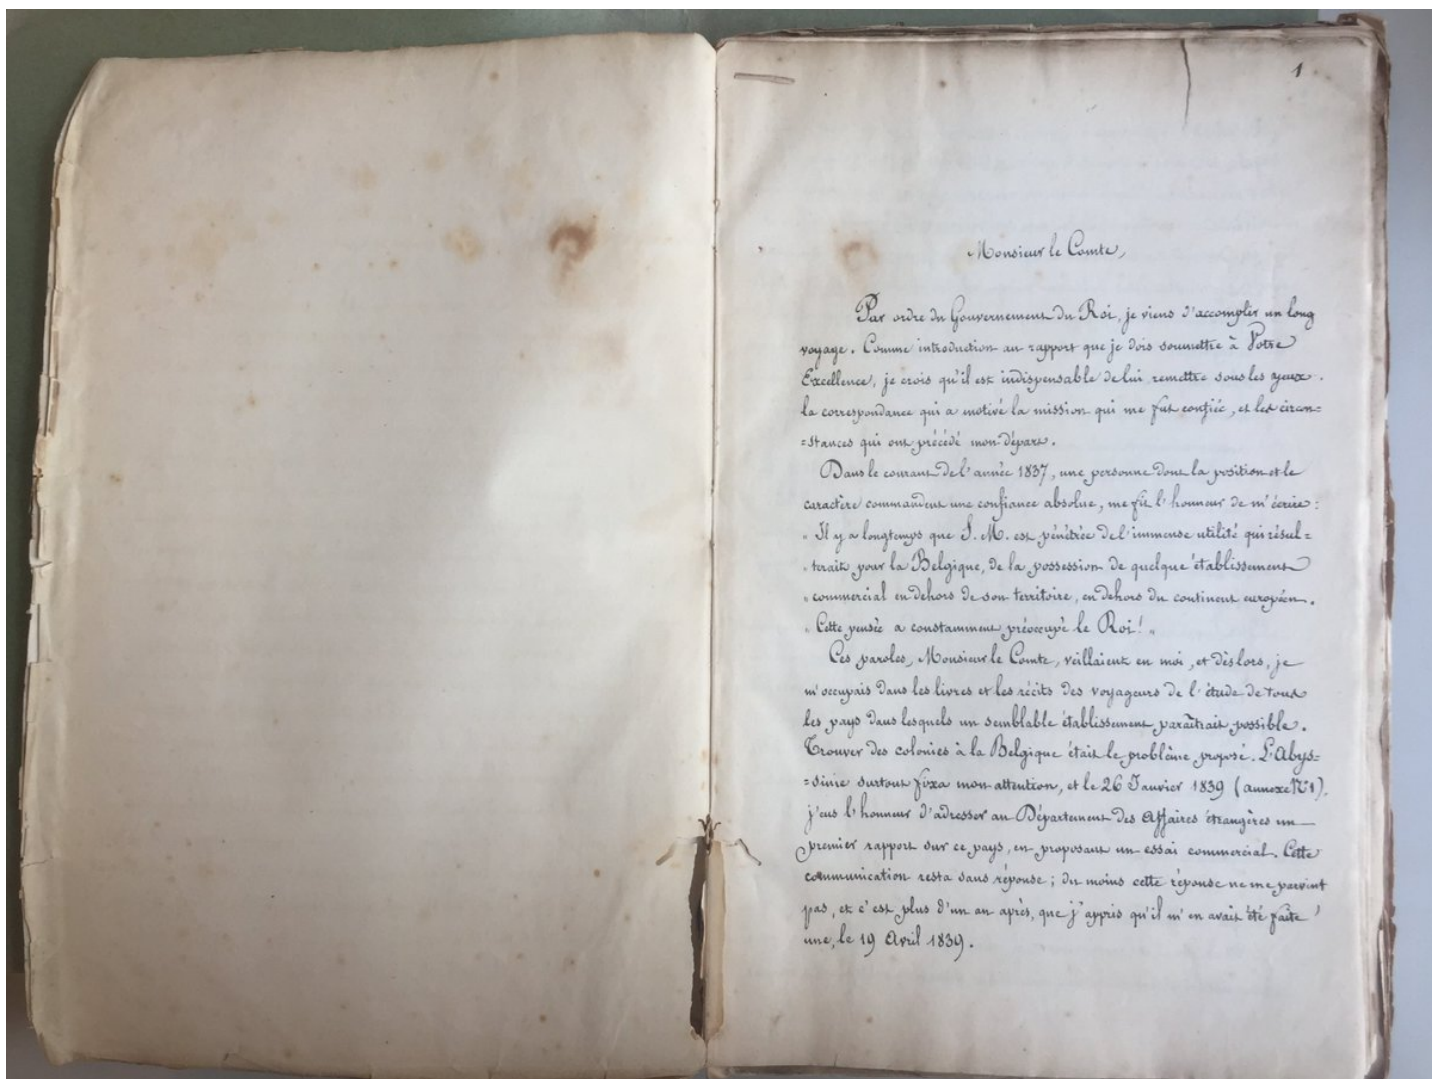 1
Monsieur le Comte,
Par ordre du Gouvernement du Roi, je viens d'accomplir un long
voyage. Comme introduction au rapport que je dois soumettre à Votre
Excellence, je crois qu'il est indispensable de lui remettre sous les yeux.
la correspondance qui a motivé la mission qui me fut confiée, et les circon=
=stances qui ont précédé mon départ.
Dans le courant de l'année 1837, une personne dont la position et le
caractère commandent une confiance absolue, me fit l'honneur de m'écrire :
" Il y a longtemps que S. M. est pénétrée de l'immense utilité qui résul=
" terait pour la Belgique, de la possession de quelque établissement
" commercial en dehors de son territoire, en dehors du continent européen.
" Cette pensée a constamment préoccupé le Roi! "
Ces paroles, Monsieur le Comte, veillaient en moi, et dèslors, je
m'occupais dans les livres et les récits des voyageurs de l'étude de tous
les pays dans lesquels un semblable établissement paraîtrait possible.
Trouver des colonies à la Belgique était le problême proposé. L'Abys=
=sinie surtout fixa mon attention, et le 26 Janvier 1839 (annexe N°1).
j'eus l'honneur d'adresser au Département des Affaires étrangères un
premier rapport sur ce pays, en proposant un essai commercial. Cette
communication resta sans réponse ; du moins cette réponse ne me parvint
pas, et c'est plus d'un an après, que j'appris qu'il m'en avait été faite
une, le 19 Avril 1839.